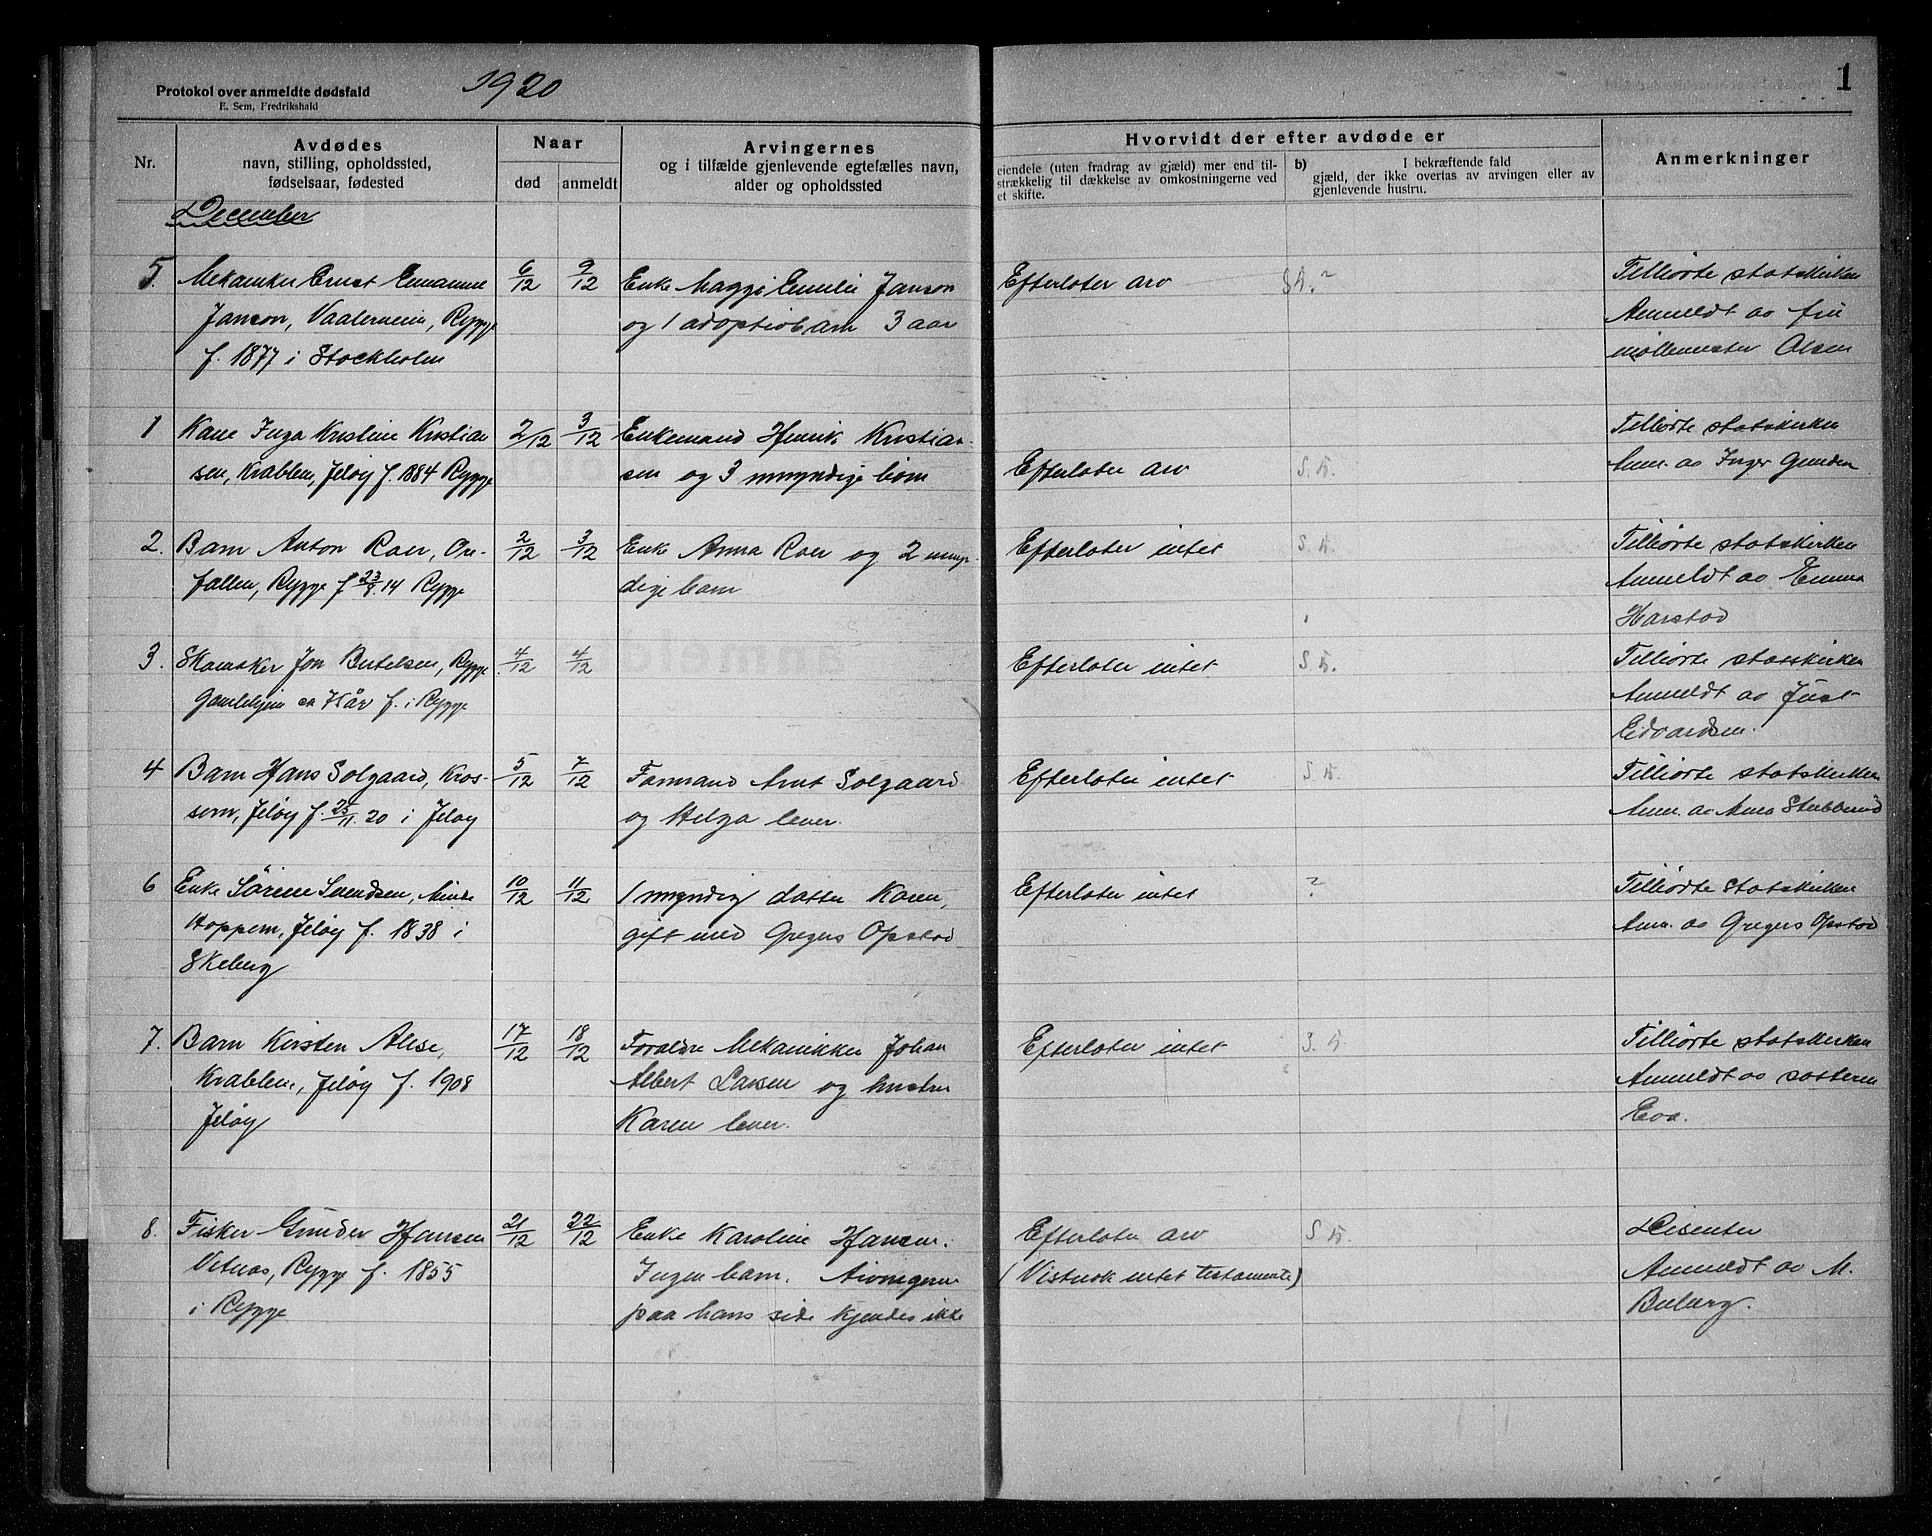 1920
1
Protokol over anmeldte dødsfald
E. Sem, Fredrikshald
Nr.
Avdødes
navn, stilling, opholdssted,
fødselsaar, fødested
Naar
død
anmeldt
Arvingernes
og i tilfælde gjenlevende egtefælles navn,
alder og opholdssted
Hvorvidt der efter avdøde er
eiendele (uten fradrag av gjæld) mer end til-
strækkelig til dækkelse av omkostningerne ved
et skifte.
b)
I bekræftende fald
gjæld, der ikke overtas av arvingen eller av
gjenlevende hustru.
Anmerkninger
December
5.
Mekaniker Ernst Emanuel
Janson, Vaalerveien, Rygge
f. 1877 i Stockholm
6/12
9/12
Enke Maggi Emilie Janson
og 1 adoptivbarn 3 aar
Efterlater arv
?
Tilhørte statskirken
Anmeldt av fru
møllemester Olsen
1
Kone Inga Kristine Kristian
sen, Krabben, Jeløy f. 1884 Rygge
2/12
3/12
Enkemand Henrik Kristian-
sen og 3 umyndige børn
Efterlater arv
S. B.
Tilhørte statskirken
Anm. av Inger Gunden
2.
Barn Anton Roer, Ore-
fallen, Rygge f. 14 Rygge
2/12
3/12
Enke Anna Roer og 2 umyn
dige barn
Efterlater intet
S. B.
Tilhørte statskirken
Anmeldt av Emma
Harstad
3.
Skomaker Jon Bertelsen, Rygge
Gamlehjem ca f. i Rygge
4/12
4/12
Efterlater intet
S. B.
Tilhørte statskirken
Anmeldt av Just
Edvardsen.
4
Barn Hans Solgaard, Kros-
sern, Jeløy f. 25/11.20 i Jeløy
5/12
7/12
Formand Arnt Solgaard
og Helga lever.
Efterlater intet
S. B.
Tilhørte statskirken
Anm. av Anna Stubberud
6
Enke Sørine Svendsen, Minde
Hoppern, Jeløy f. 1838 i
Skeberg
10/12
11/12
1 myndig datter Karen,
gift med Gregers Opstad
Efterlater intet
?
Tilhørte Statskirken
Anm. av Gregers Opstad
7.
Barn Kirsten Alise,
Krabben, Jeløy f. 1908
Jeløy
17/12
18/12
Forældre Mekanikker Johan
Albert Larsen og hustru
Karen lever.
Efterlater intet
S. B.
Tilhørte statskirken
Anmeldt av søsteren
Eva.
8.
Fisker Gunder Hansen
Vetnas, Rygge f. 1855
i Rygge
21/12
22/12
Enke Karoline Hansen.
Ingen barn. Arvingerne
paa hans side kjendes ikke
Efterlater arv
(Vistnok intet testamente)
S. B.
Disenter
Anmeldt av M.
Buberg.